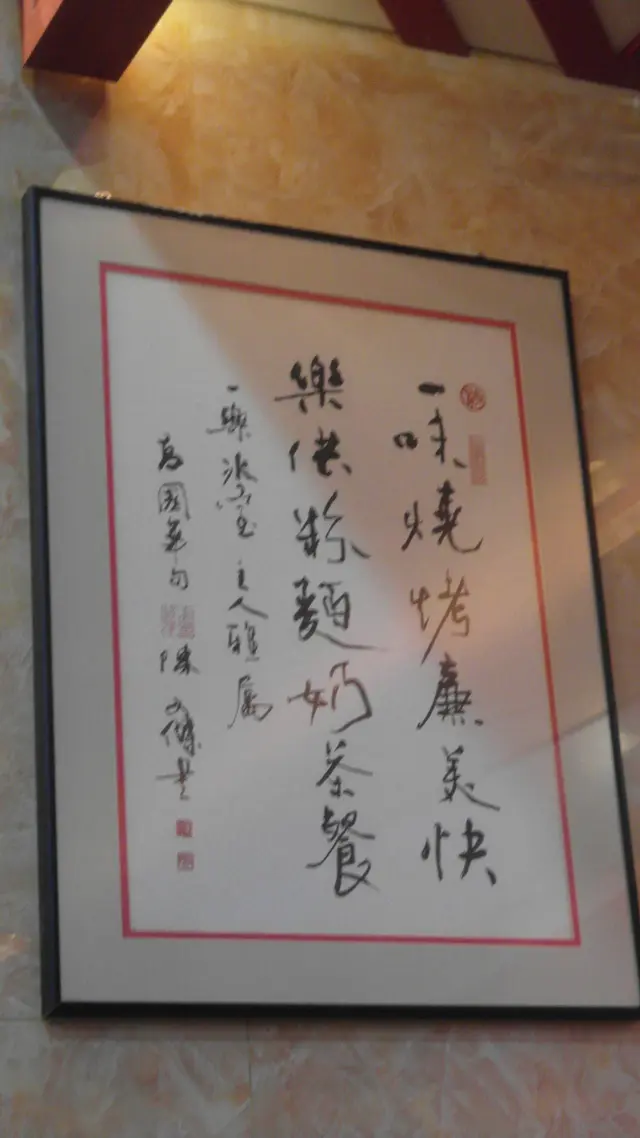 一味燒烤廉美快
樂供粉麵奶茶餐
一樂冰室主人雅屬
高國
句
陳
書